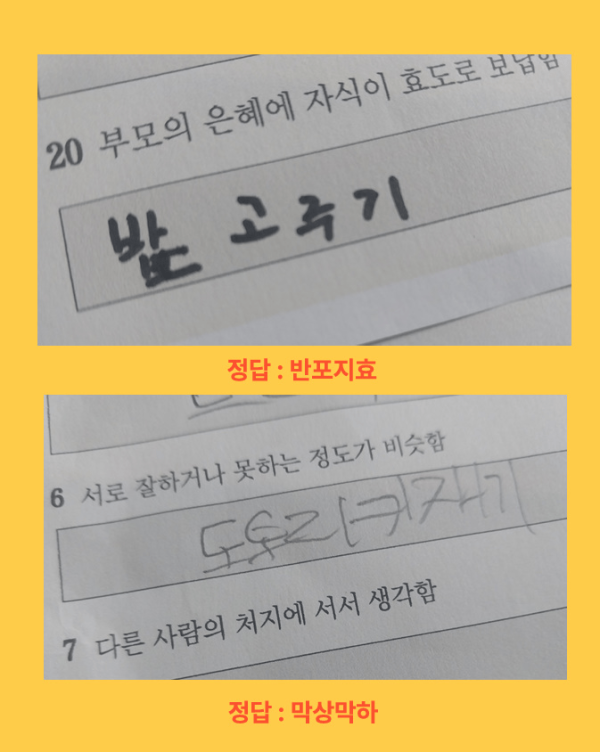 20 부모의 은혜에 자식이 효도로 보답함
고주기
정답 : 반포지효
6 서로 잘하거나 못하는 정도가 비슷함
도토리키재기
7 다른 사람의 처지에 서서 생각함
정답 : 막상막하